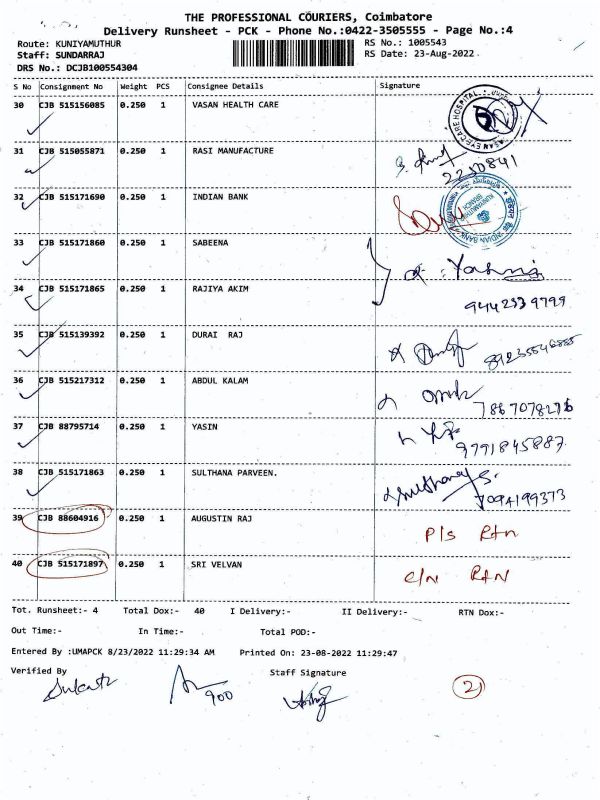 THE PROFESSIONAL COURIERS, Coimbatore
Delivery Runsheet - PCK - Phone No.:0422-3505555 - Page No.:4
Route: KUNIYAMUTHUR RS No.: 1005543
Staff: SUNDARRAJ RS Date: 23-Aug-2022
DRS No.: DCJB100554304
S No Consignment No Weight PCS Consignee Details Signature
30 CJB 515156085 0.250 1 VASAN HEALTH CARE
31 CJB 515055871 0.250 1 RASI MANUFACTURE
2250841
32 CJB 515171690 0.250 1 INDIAN BANK
33 CJB 515171860 0.250 1 SABEENA
34 CJB 515171865 0.250 1 RAJIYA AKIM
9442339799
35 CJB 515139392 0.250 1 DURAI RAJ
36 CJB 515217312 0.250 1 ABDUL KALAM
37 CJB 88795714 0.250 1 YASIN
9791845887
38 CJB 515171863 0.250 1 SULTHANA PARVEEN.
7094199373
39 CJB 88604916 0.250 1 AUGUSTIN RAJ P/s Rtn
40 CJB 515171897 0.250 1 SRI VELVAN C/N Rtn
Tot. Runsheet:- 4 Total Dox:- 40 I Delivery:- II Delivery:- RTN Dox:-
Out Time:- In Time:- Total POD:-
Entered By :UMAPCK 8/23/2022 11:29:34 AM Printed On: 23-08-2022 11:29:47
Verified By Staff Signature
900
2